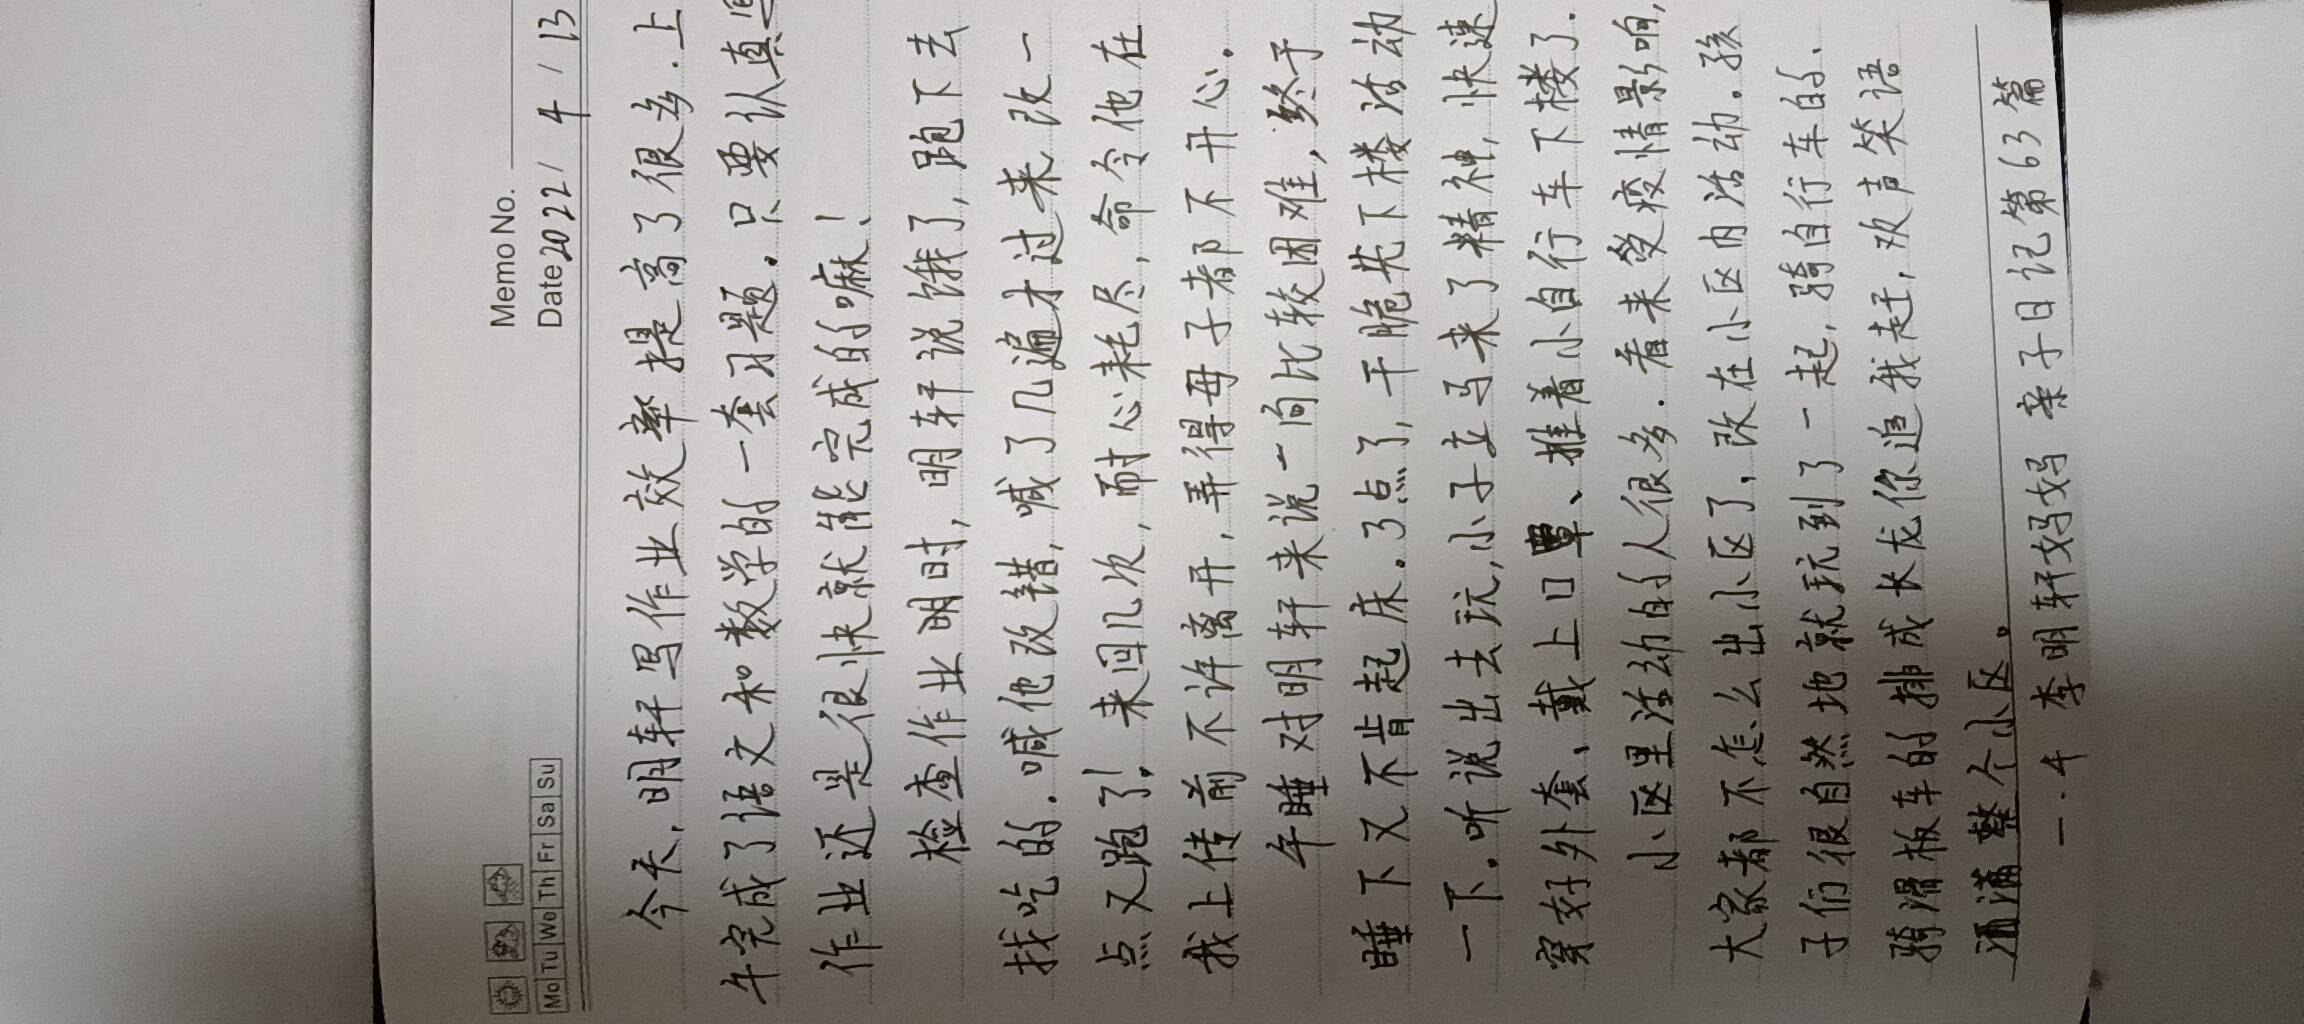 Memo No.
Mo Tu We Th Fr Sa Su
Date 2022 / 4 / 13
今天，明轩写作业效率提高了很多．上
午完成了语文和数学的一套习题。只要认真
作业还是很快就能完成的嘛！
检查作业明时，明轩说饿了，跑下去
找吃的．喊他改错，喊了几遍才过来改一
点又跑了！来回几次，耐心耗尽，命令他在
我上传前不许离开，弄得母子者都不开心。
午睡对明轩来说一向比较困难，终于
睡下又不肯起床．3点了，干脆先下楼活动
一下。听说出去玩，小子立马来了精神，快速
穿好外套、戴上口罩、推着小自行车下楼了．
小区里活动的人很多．看来受疫情影响，
大家都不怎么出小区了，改在小区内活动．孩
子们很自然地就玩到了一起，骑自行车的、
骑滑板车的排成长龙你追我赶，欢声笑语
洒满整个小区。
一．4 李明轩妈妈 亲子日记第63篇